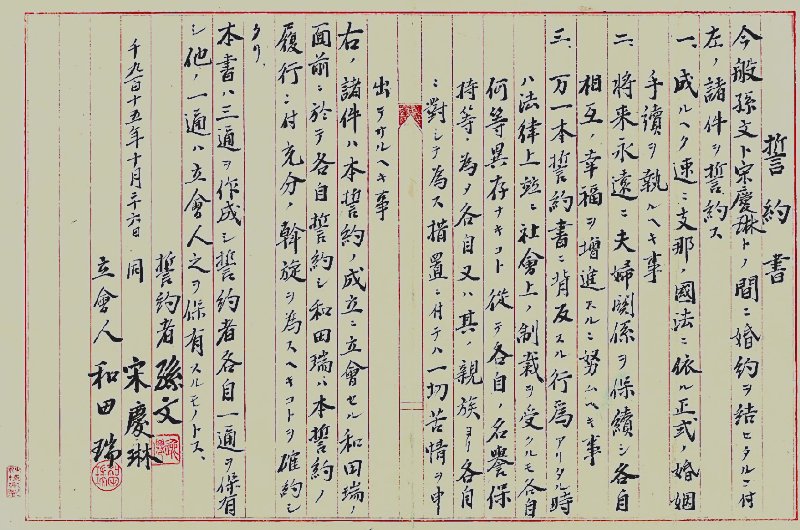 誓約書
今般孫文ト宋慶琳トノ間ニ婚約ヲ結セタルニ付
左ノ諸件ヲ誓約ス
一、成ルヘク速ニ支那ノ國法ニ依ル正式ノ婚姻
手續ヲ執ルヘキ事
二、將来永遠ニ夫婦関係ヲ保續シ各自
相互ノ幸福ヲ增進スルニ努ムヘキ事
三、万一本誓約書ニ背反スル行爲アリタル時
ハ法律上竝ニ社會上ノ制裁ヲ受クルモ各自
何等異存ナキコト従テ各自ノ名譽保
持等ノ為メ各自又ハ其ノ親族ヨリ各自
ニ對シテ為ス措置ニ付テハ一切苦情ヲ申
出テサルヘキ事
右ノ諸件ハ本誓約ノ成立ニ立會セル和田瑞ノ
面前ニ於テ各自誓約シ和田瑞ハ本誓約ノ
履行ニ付充分ノ斡旋ヲ為スヘキコトヲ確約シ
タリ、
本書ハ三通ヲ作成シ誓約者各自一通ヲ保有
シ他ノ一通ハ立會人之ヲ保有スルモノトス、
千九百十五年十月二十六日
誓約者 孫文
同 宋慶琳
立會人 和田瑞